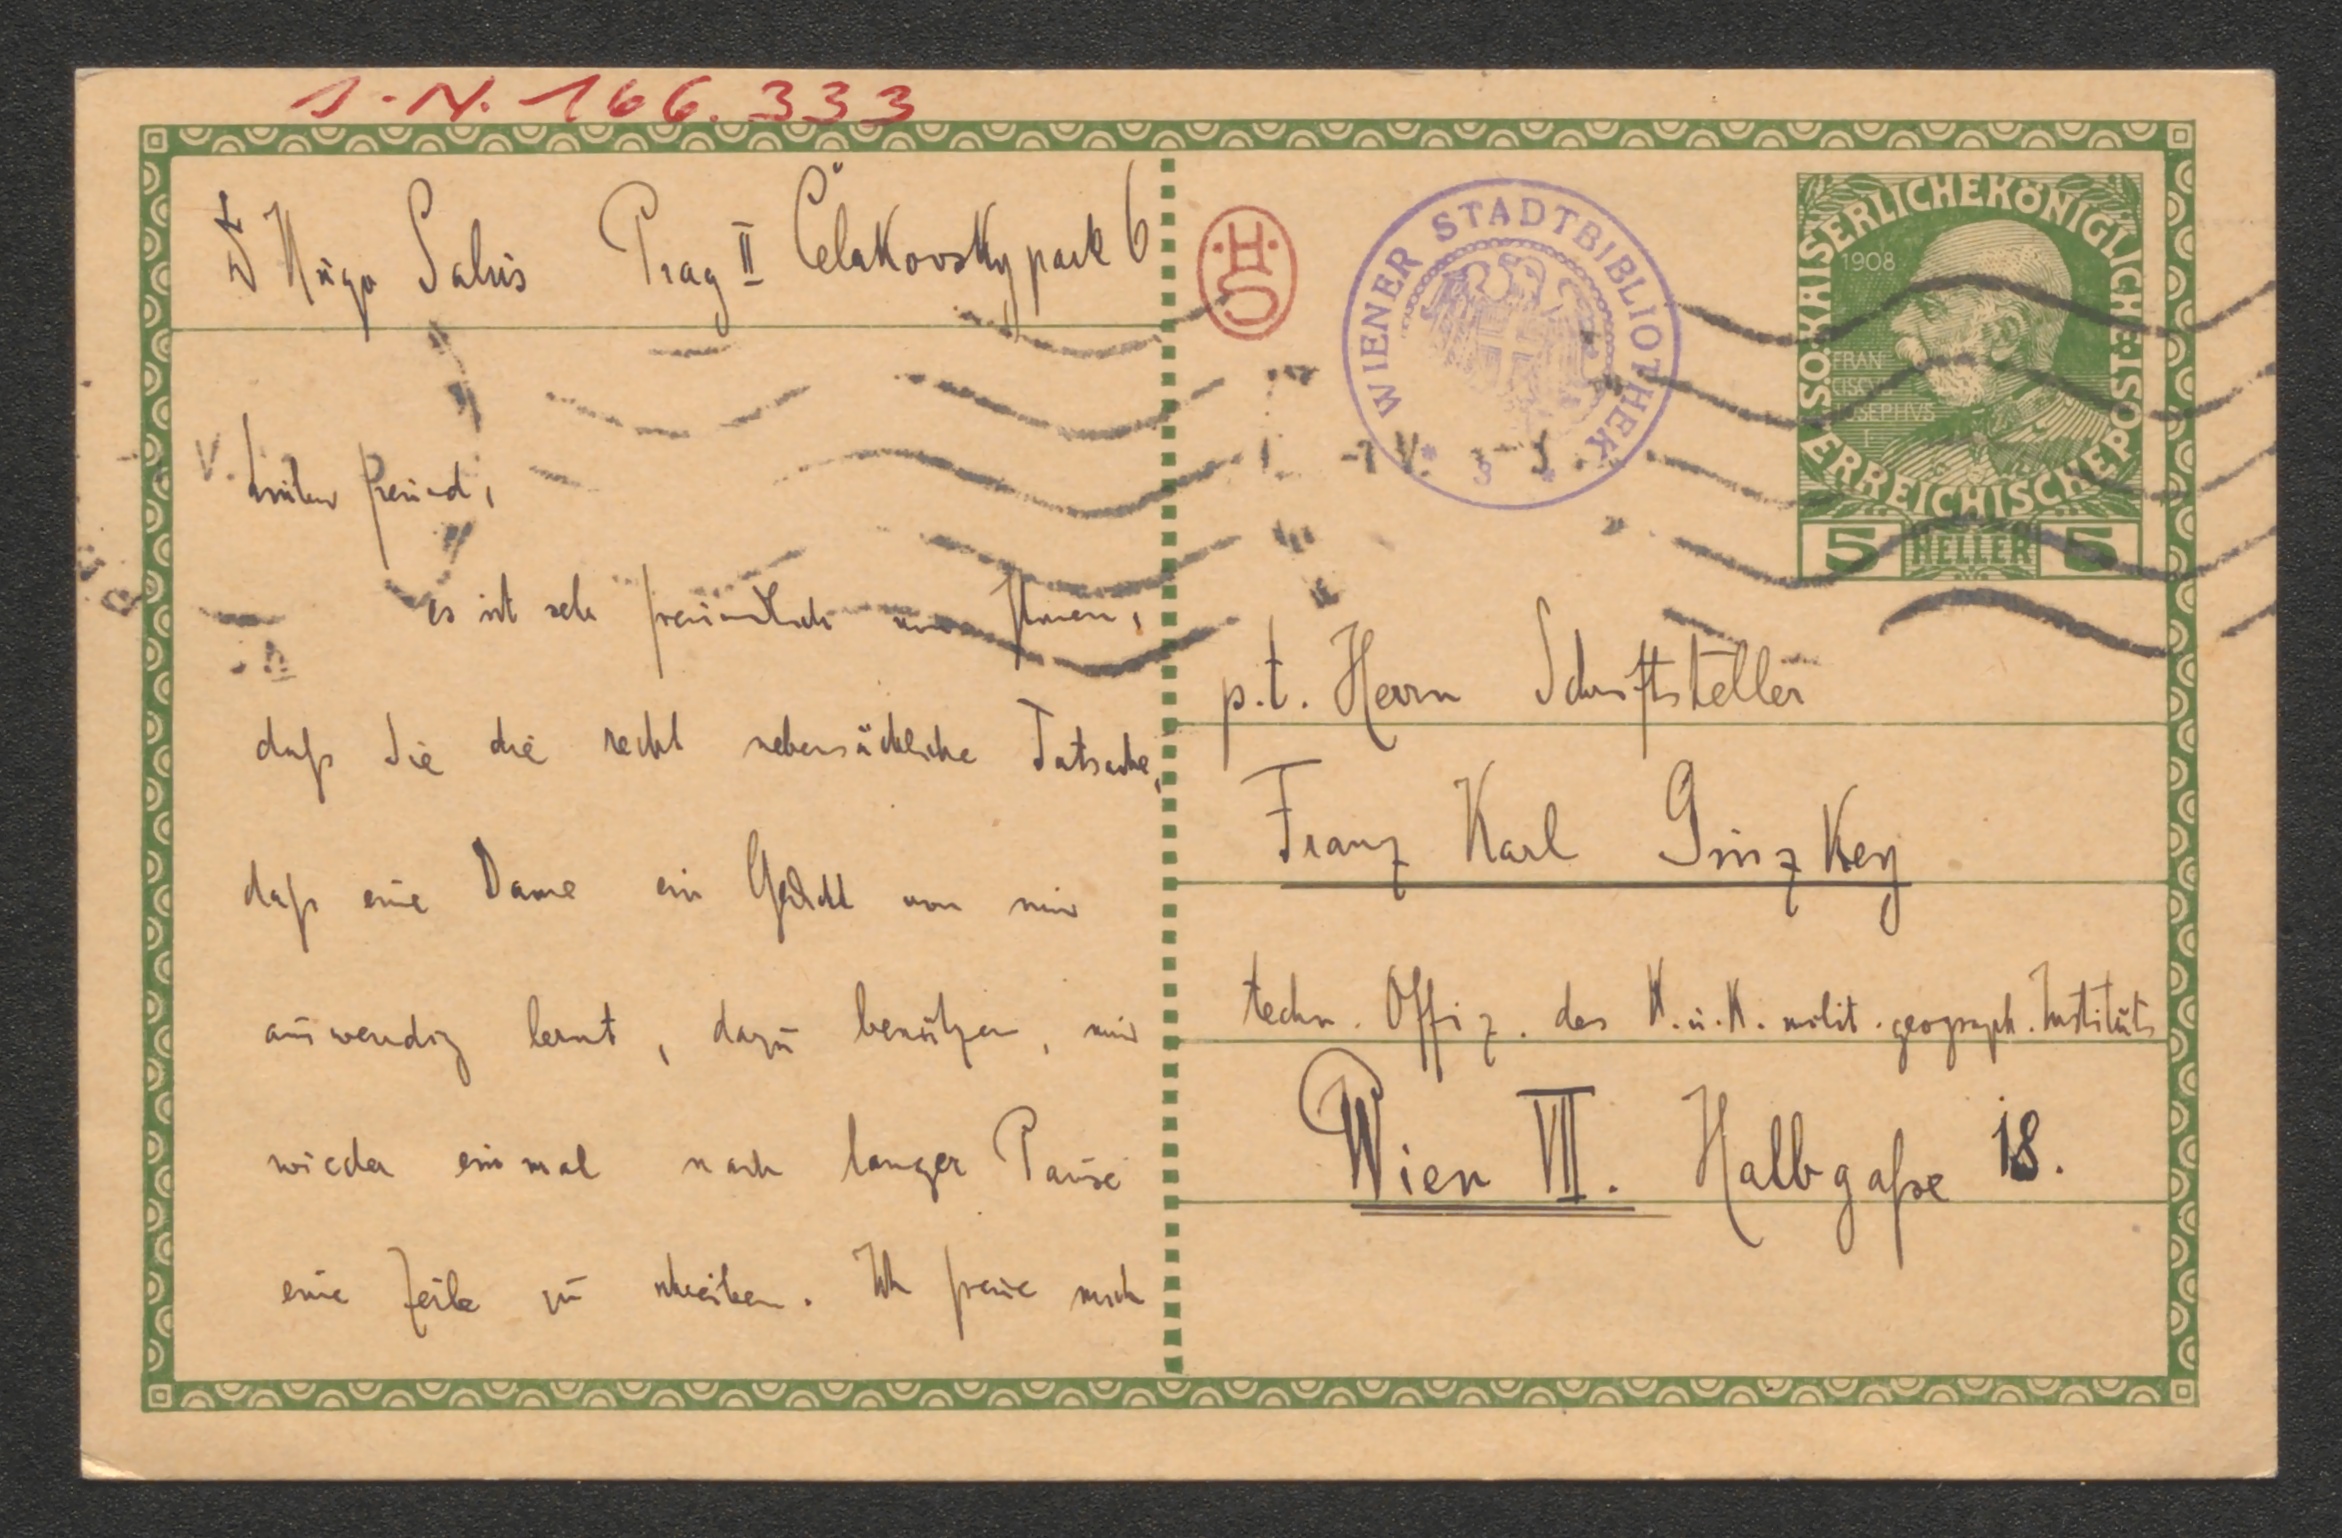 J.N. 166.333
Dr Hugo Salus Prag II Čelakovskypark 6
V. Lieber Freund,
es ist sehr freundlich von Ihnen,
daß Sie die recht nebensächliche Tatsache,
daß eine Dame ein Gedicht von mir
auswendig lernt, dazu benützen, mir
wieder einmal nach langer Pause
eine Zeile zu schreiben. Ich freue mich
WIENER STADTBIBLIOTHEK
KAISERLICHEKÖNIGLICHE ÖSTERREICHISCHE POST
1908
FRAN
CISCVS
IOSEPHVS
I
5 HELLER 5
p.t. Herrn Schriftsteller
Franz Karl Ginzkey
techn. Offiz. des K.u.K. milit. geograph. Instituts
Wien VII. Halbgaße 18.